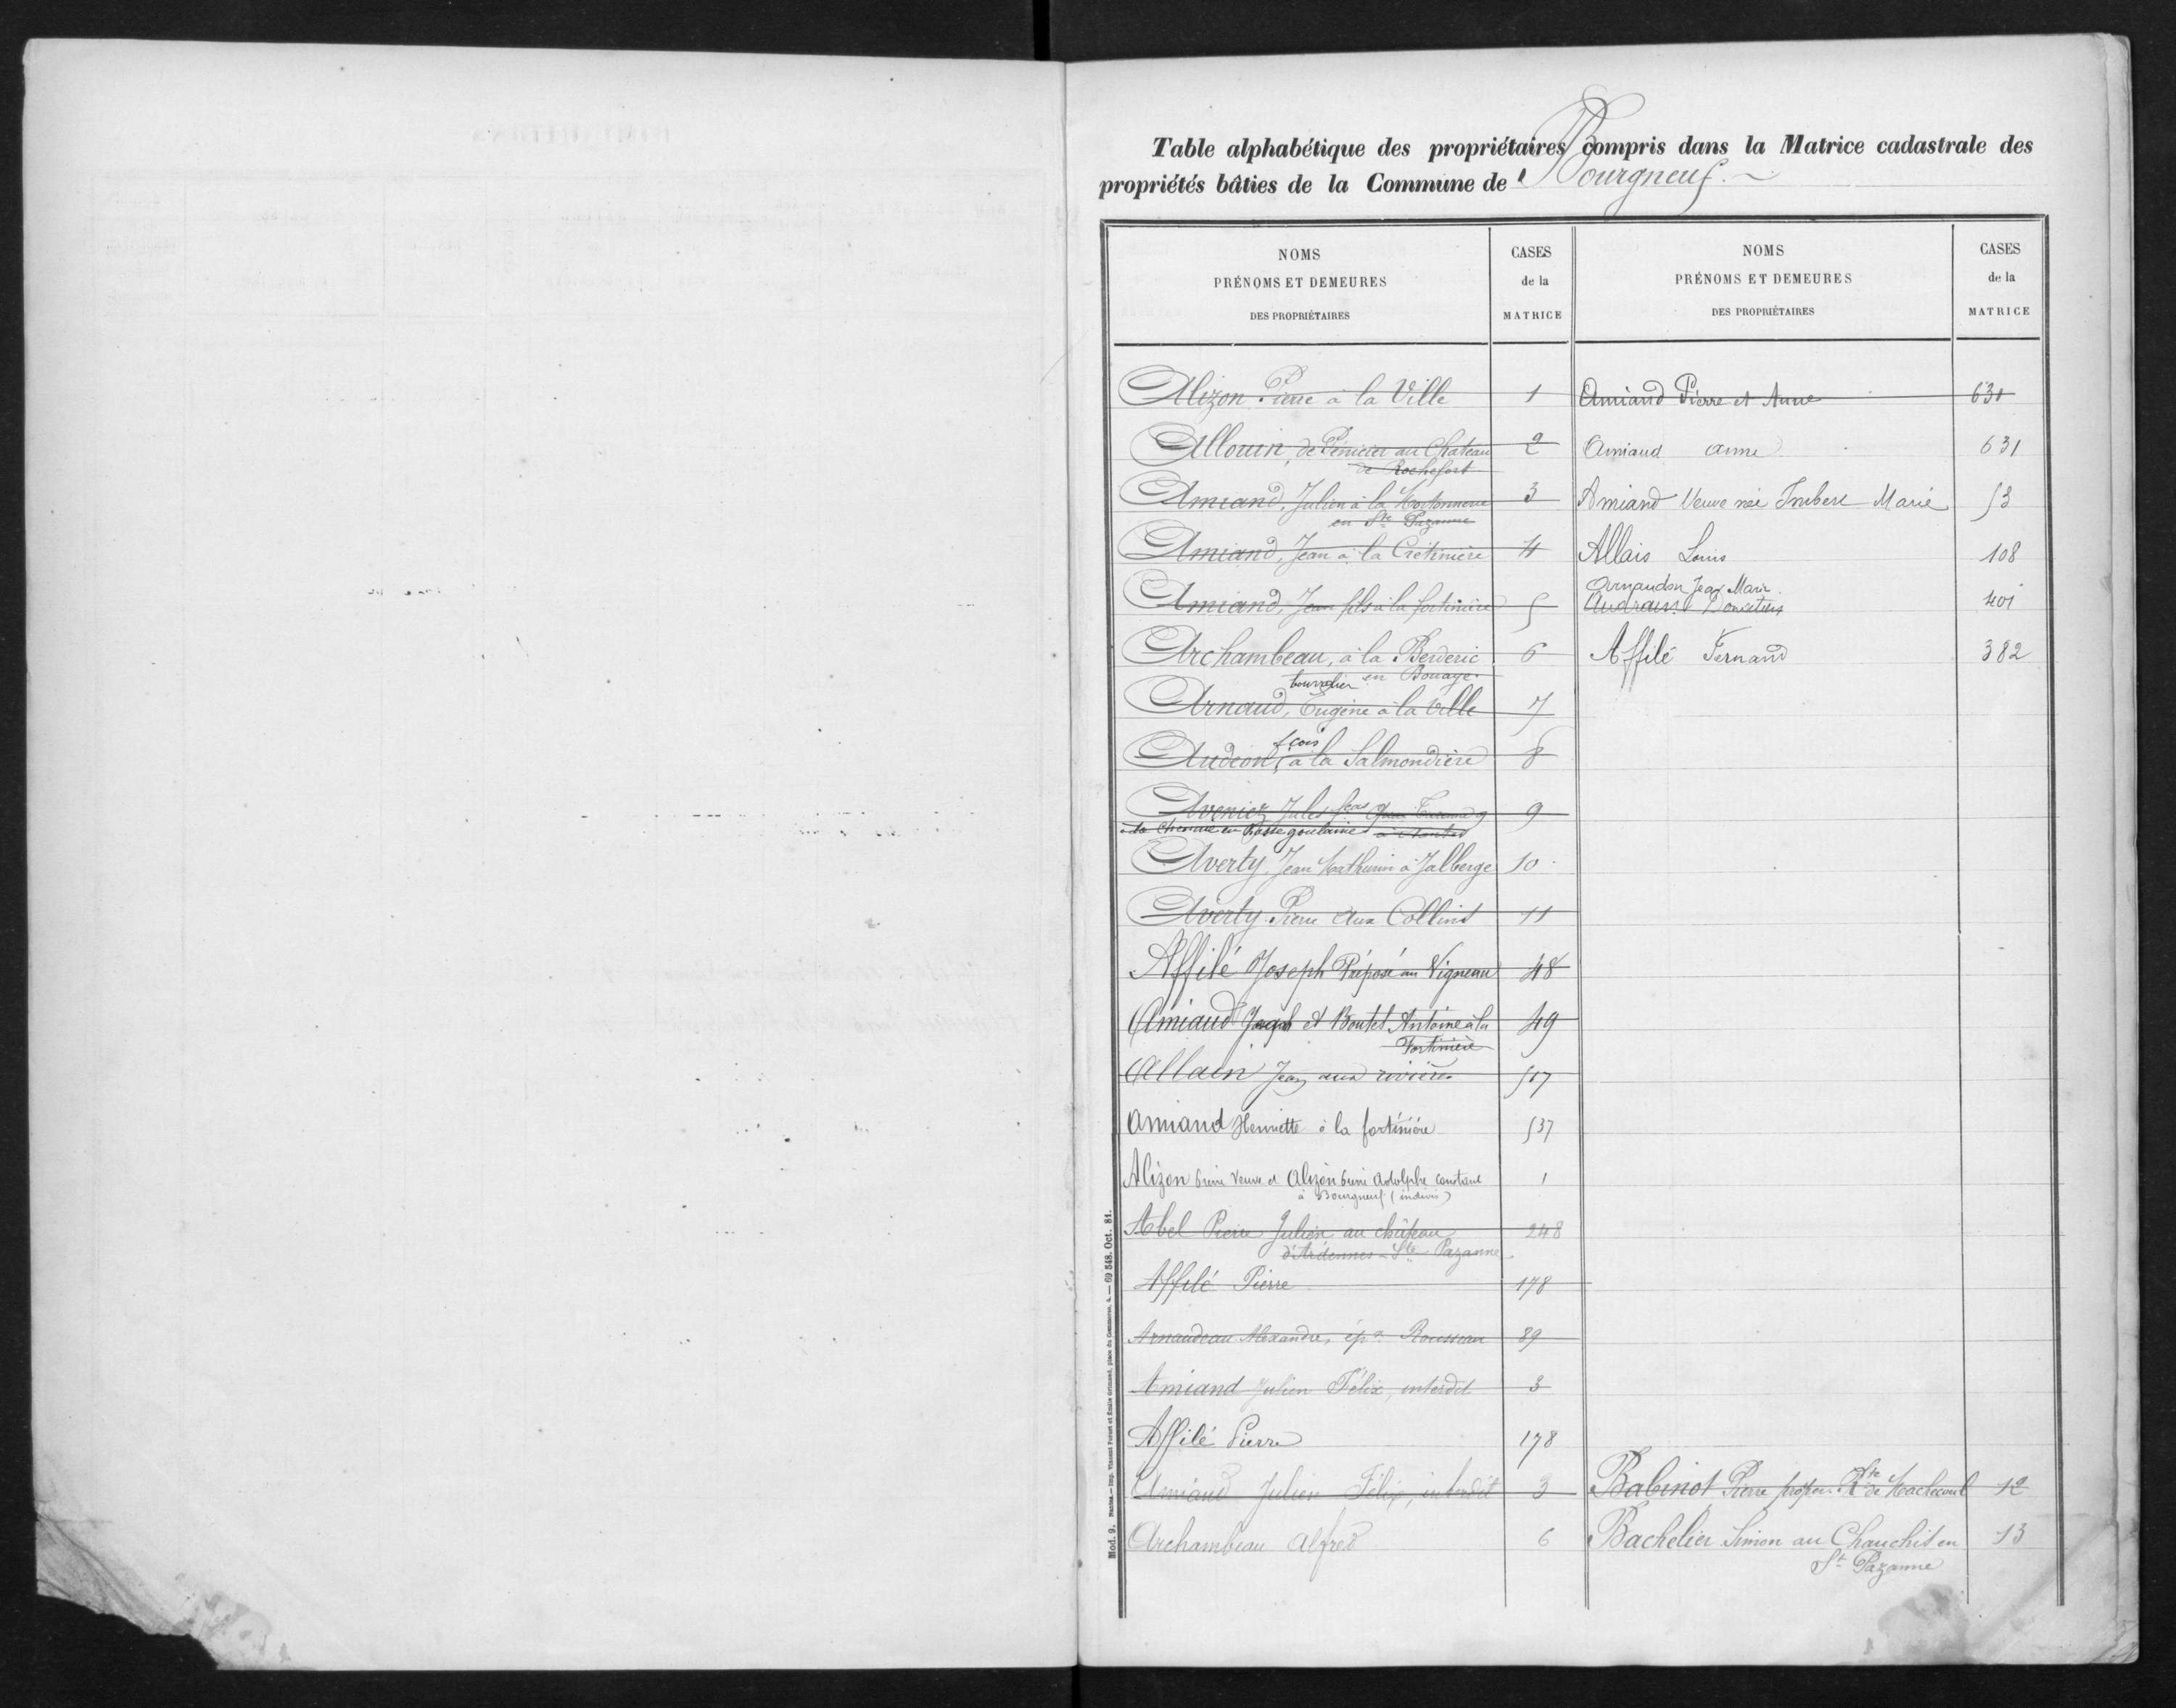 Table alphabétique des propriétaires compris dans la Matrice cadastrale des
propriétés bâties de la Commune de Bourgneuf.
NOMS
PRÉNOMS ET DEMEURES
DES PROPRIÉTAIRES
CASES
de la
MATRICE
Alizon Pierre à la Ville 1
Allouin, de Pénicier au Chateau 2
de Rochefort
Amiand, Julien à la 3
en Ste Pazanne
Amiand, Jean à la Crétinière 4
Amiand, Jean fils à la fortinière 5
Archambeau, à la Berderie 6
en Bouaye
bourrelier
Arnaud, Eugène à la Ville 7
fçois
Audion, à la Salmondière 8
Jules 9
à la en Basse goulaine
Averty, Jean Mathurin à Jalberge 10
Averty Pierre aux Collins 11
Affilé Joseph Préposé au Vigneau 48
Amiaud Joseph et Boutet Antoine à la 49
Fortinière
Allain Jean aux rivières 517
Amiand Henriette à la fortinière 537
Alizon Pierre Veuve et Alizon Pierre Adolphe Constant 1
à Bourgneuf (indivis)
Abel Pierre Julien au château 248
d'Ardennes Ste Pazanne
Affilé Pierre 178
Arnaudeau Alexandre, ép. Rousseau 89
Amiand Julien Félix, interdit 3
Affilé Pierre 178
Amiaud Julien Félix, interdit 3
Archambeau Alfred 6
NOMS
PRÉNOMS ET DEMEURES
DES PROPRIÉTAIRES
CASES
de la
MATRICE
Amiand Pierre et Anne 631
Amiaud Anne 631
Amiand Veuve née Imbert Marie 53
Allais Louis 108
Arnaudon Jean Marie
Audrain 401
Affilé Fernand 382
Babinot Pierre propre Rte de Machecoul 12
Bachelier Simon au Chauchit en 13
St Pazanne
Mod. 9. Nantes. — Imp. Vincent Forest et Émile Grimaud, place du Commerce, 4. — 69 548. Oct. 81.